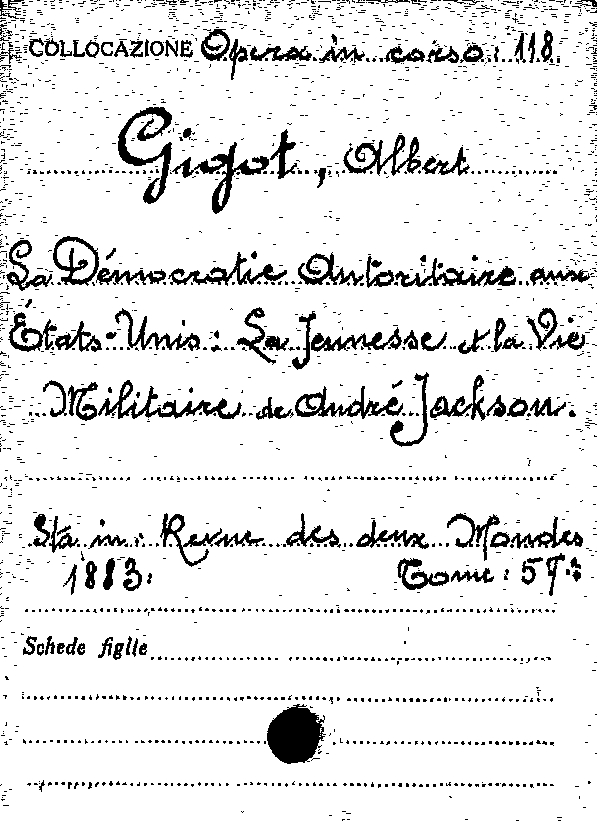 COLLOCAZIONE Opera in corso: 118.
Gigot, Albert
La Démocratie Autoritaire aux
États-Unis: La Jeunesse et la Vie
Militaire de André Jackson.
Sta in: Revue des deux Mondes
1883. Tome: 57.
Schede figlie